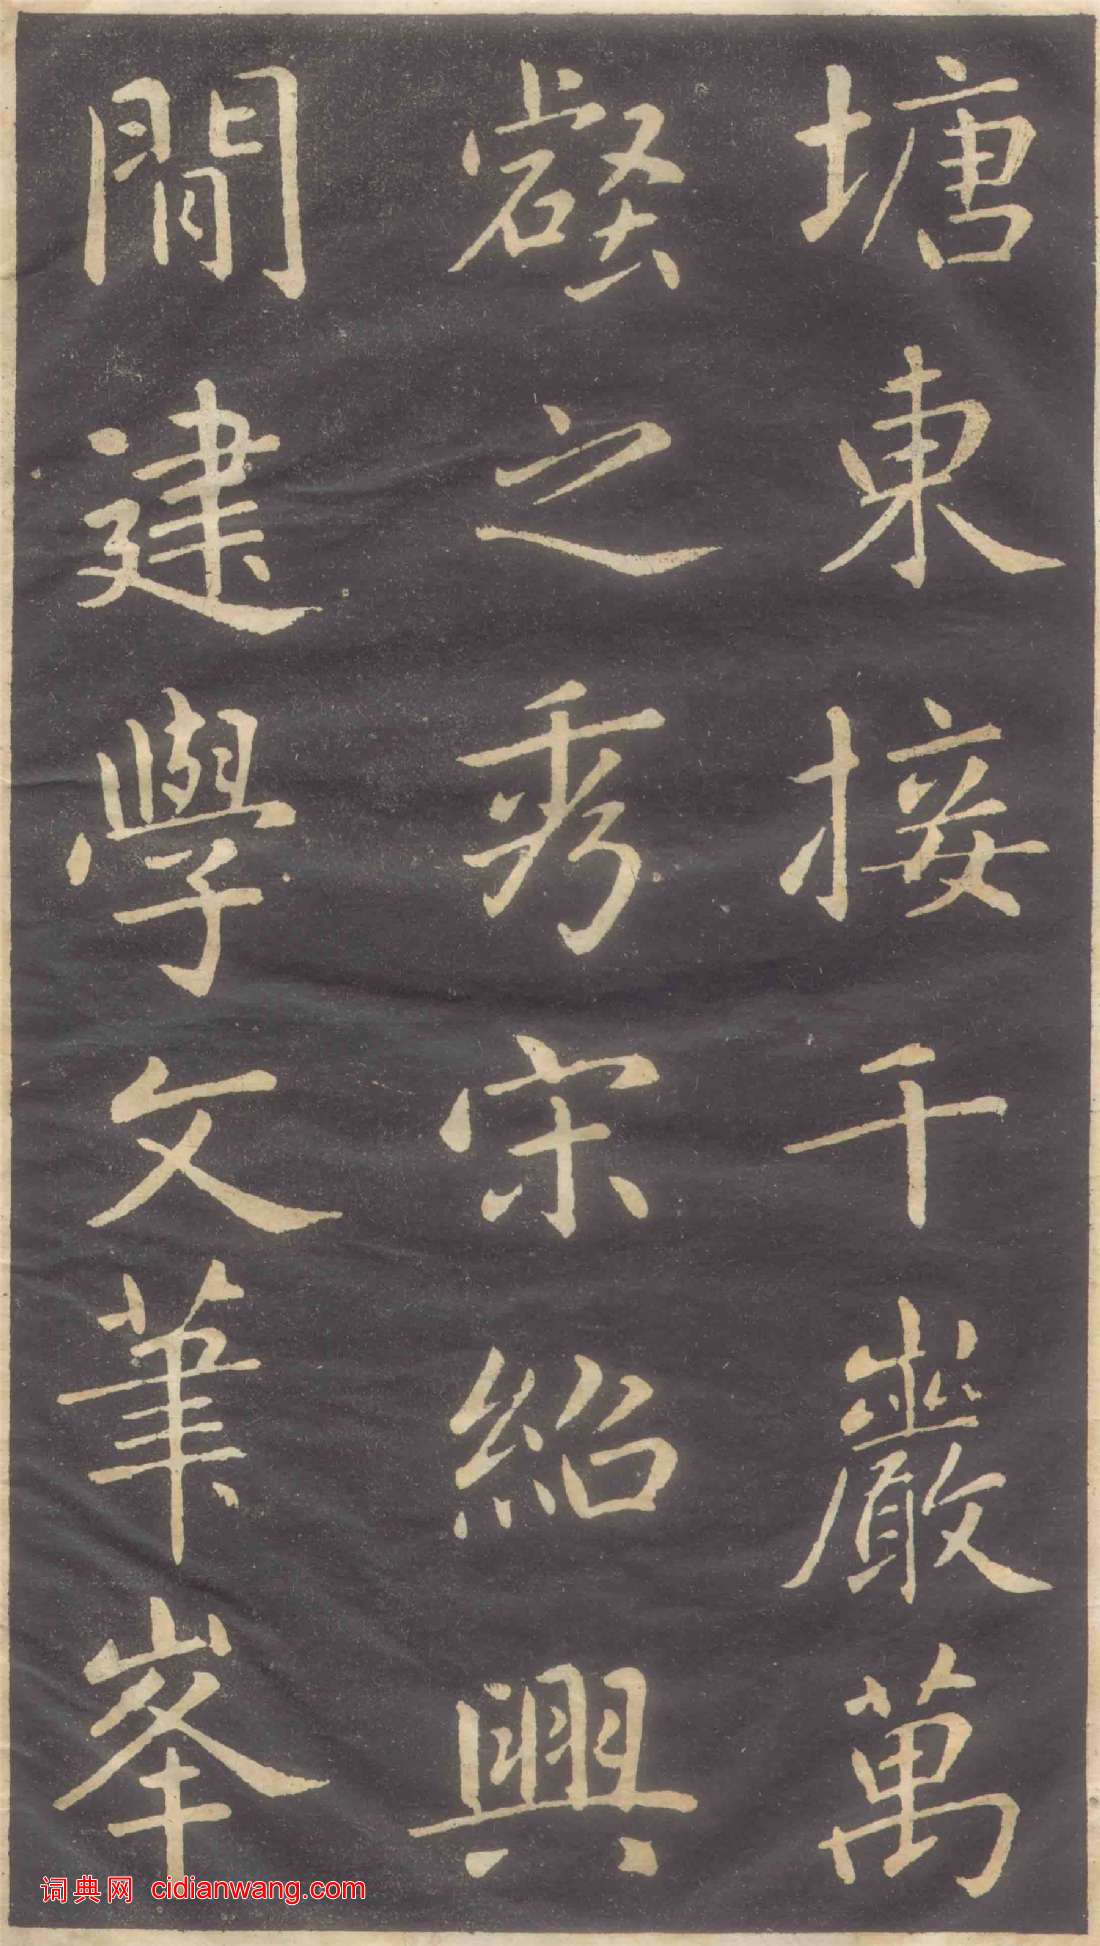 塘東接千巖萬
壑之秀宋紹興
間建學文筆峯
词典网 cidianwang.com